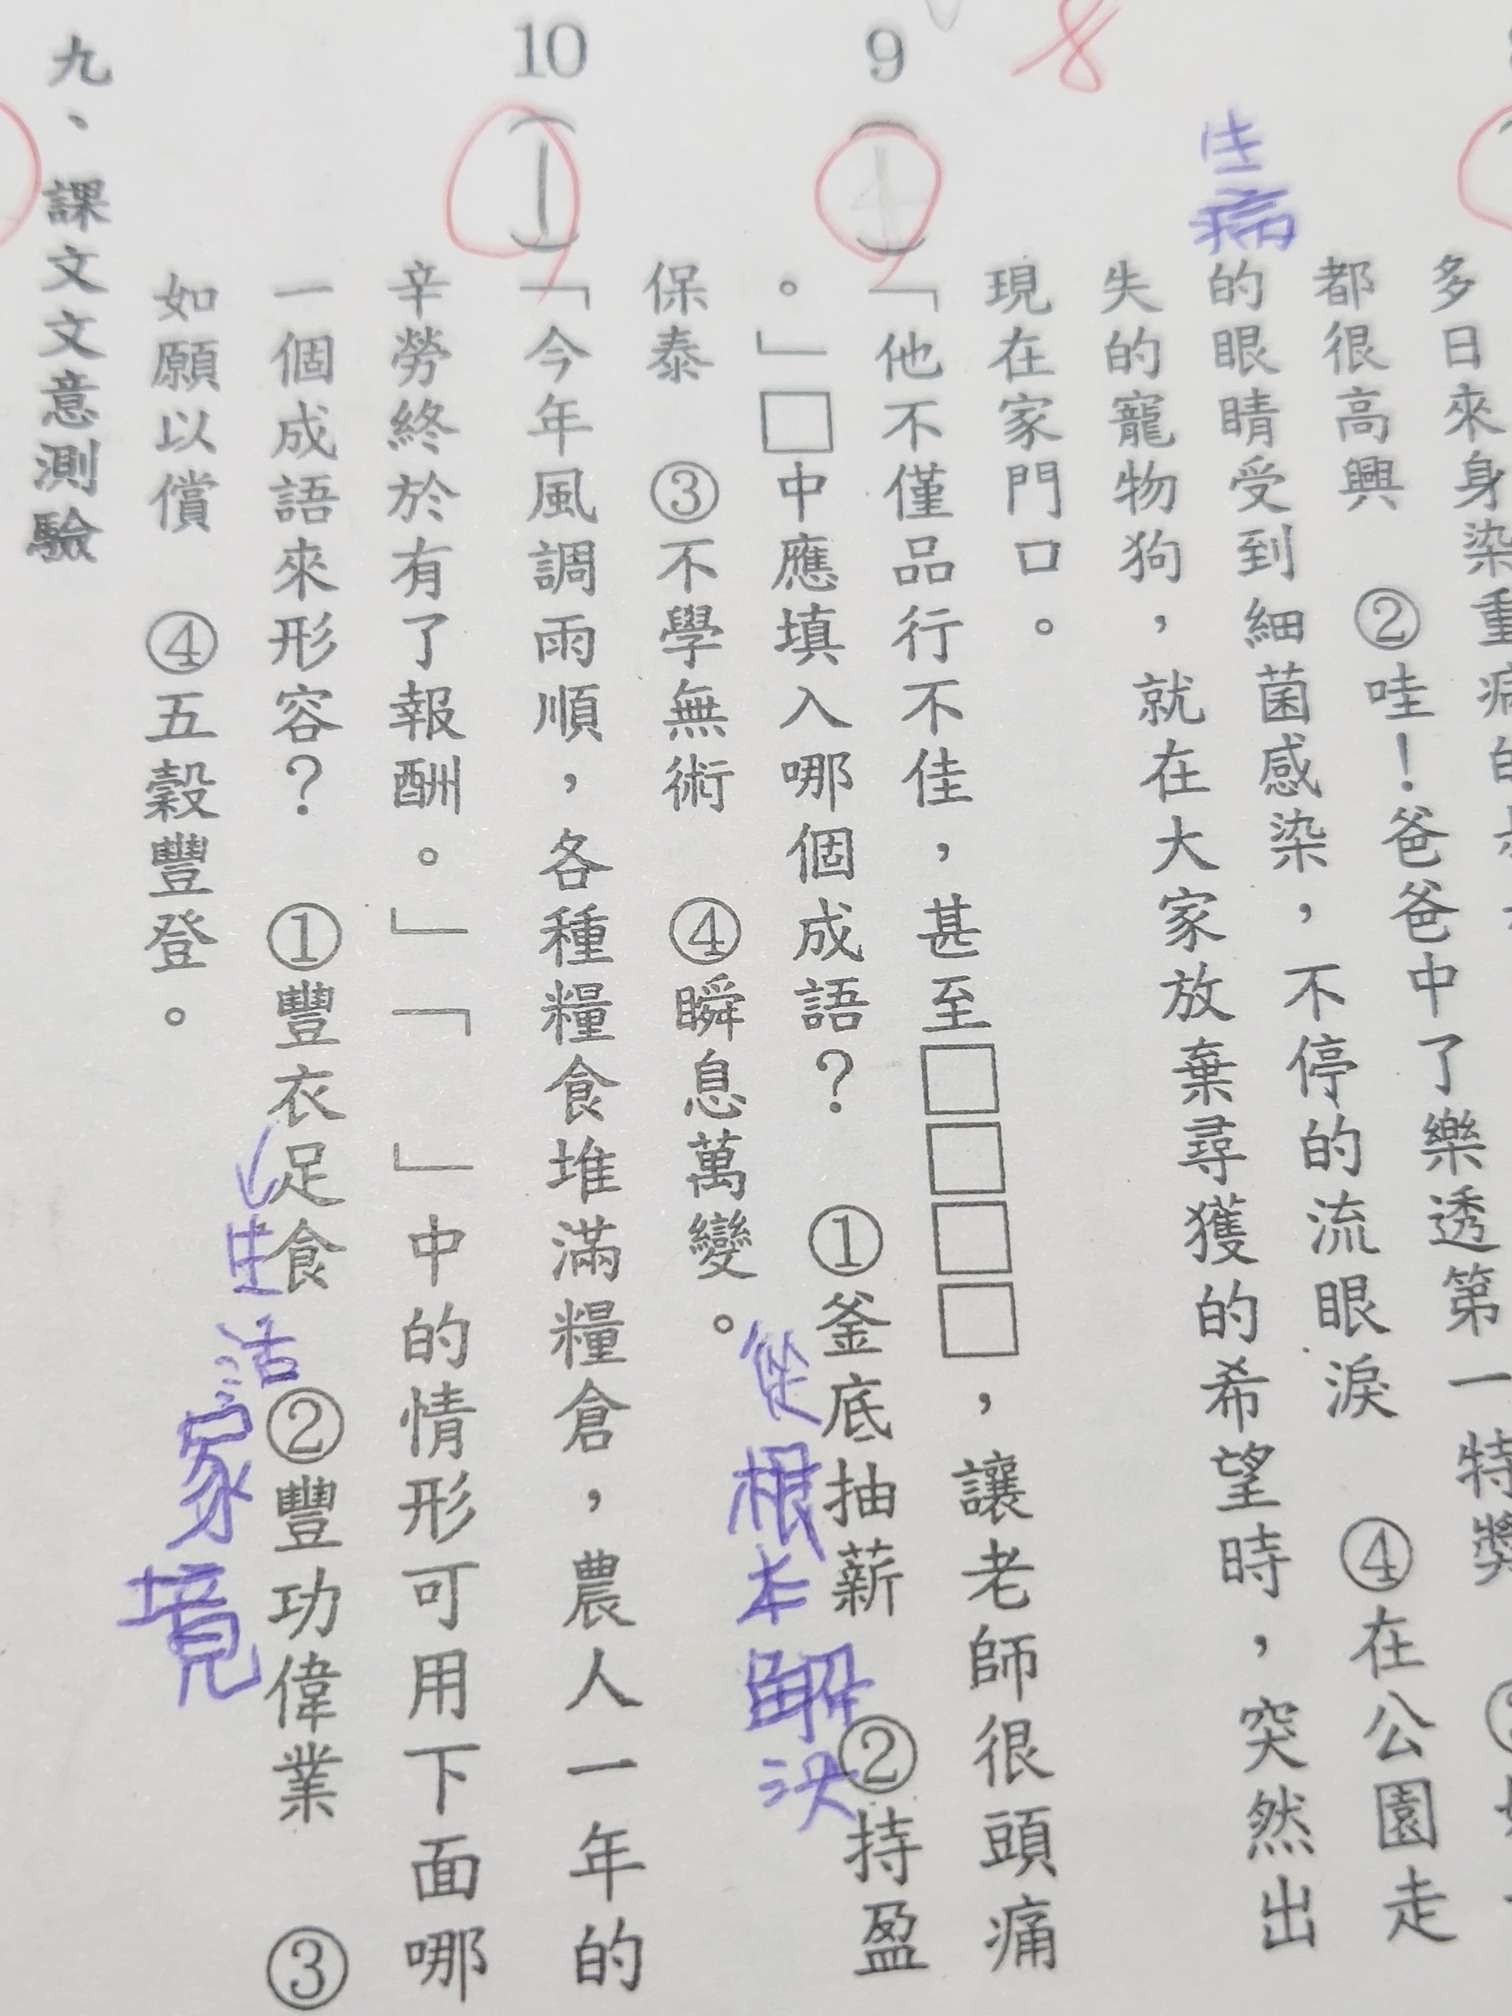 多日來身染重病的
都很高興 ②哇!爸爸中了樂透第一特獎
的眼睛受到細菌感染,不停的流眼淚 ④在公園走
失的寵物狗,就在大家放棄尋獲的希望時,突然出
現在家門口。
生病
8
9 ( 4 ) 「他不僅品行不佳,甚至□□□□,讓老師很頭痛
。」□中應填入哪個成語? ①釜底抽薪 ②持盈
保泰 ③不學無術 ④瞬息萬變。
從根本解決
10 ( 1 ) 「今年風調雨順,各種糧食堆滿糧倉,農人一年的
辛勞終於有了報酬。」「 」中的情形可用下面哪
一個成語來形容? ①豐衣足食 ②豐功偉業 ③
如願以償 ④五穀豐登。
↓生活
家境
九、課文文意測驗